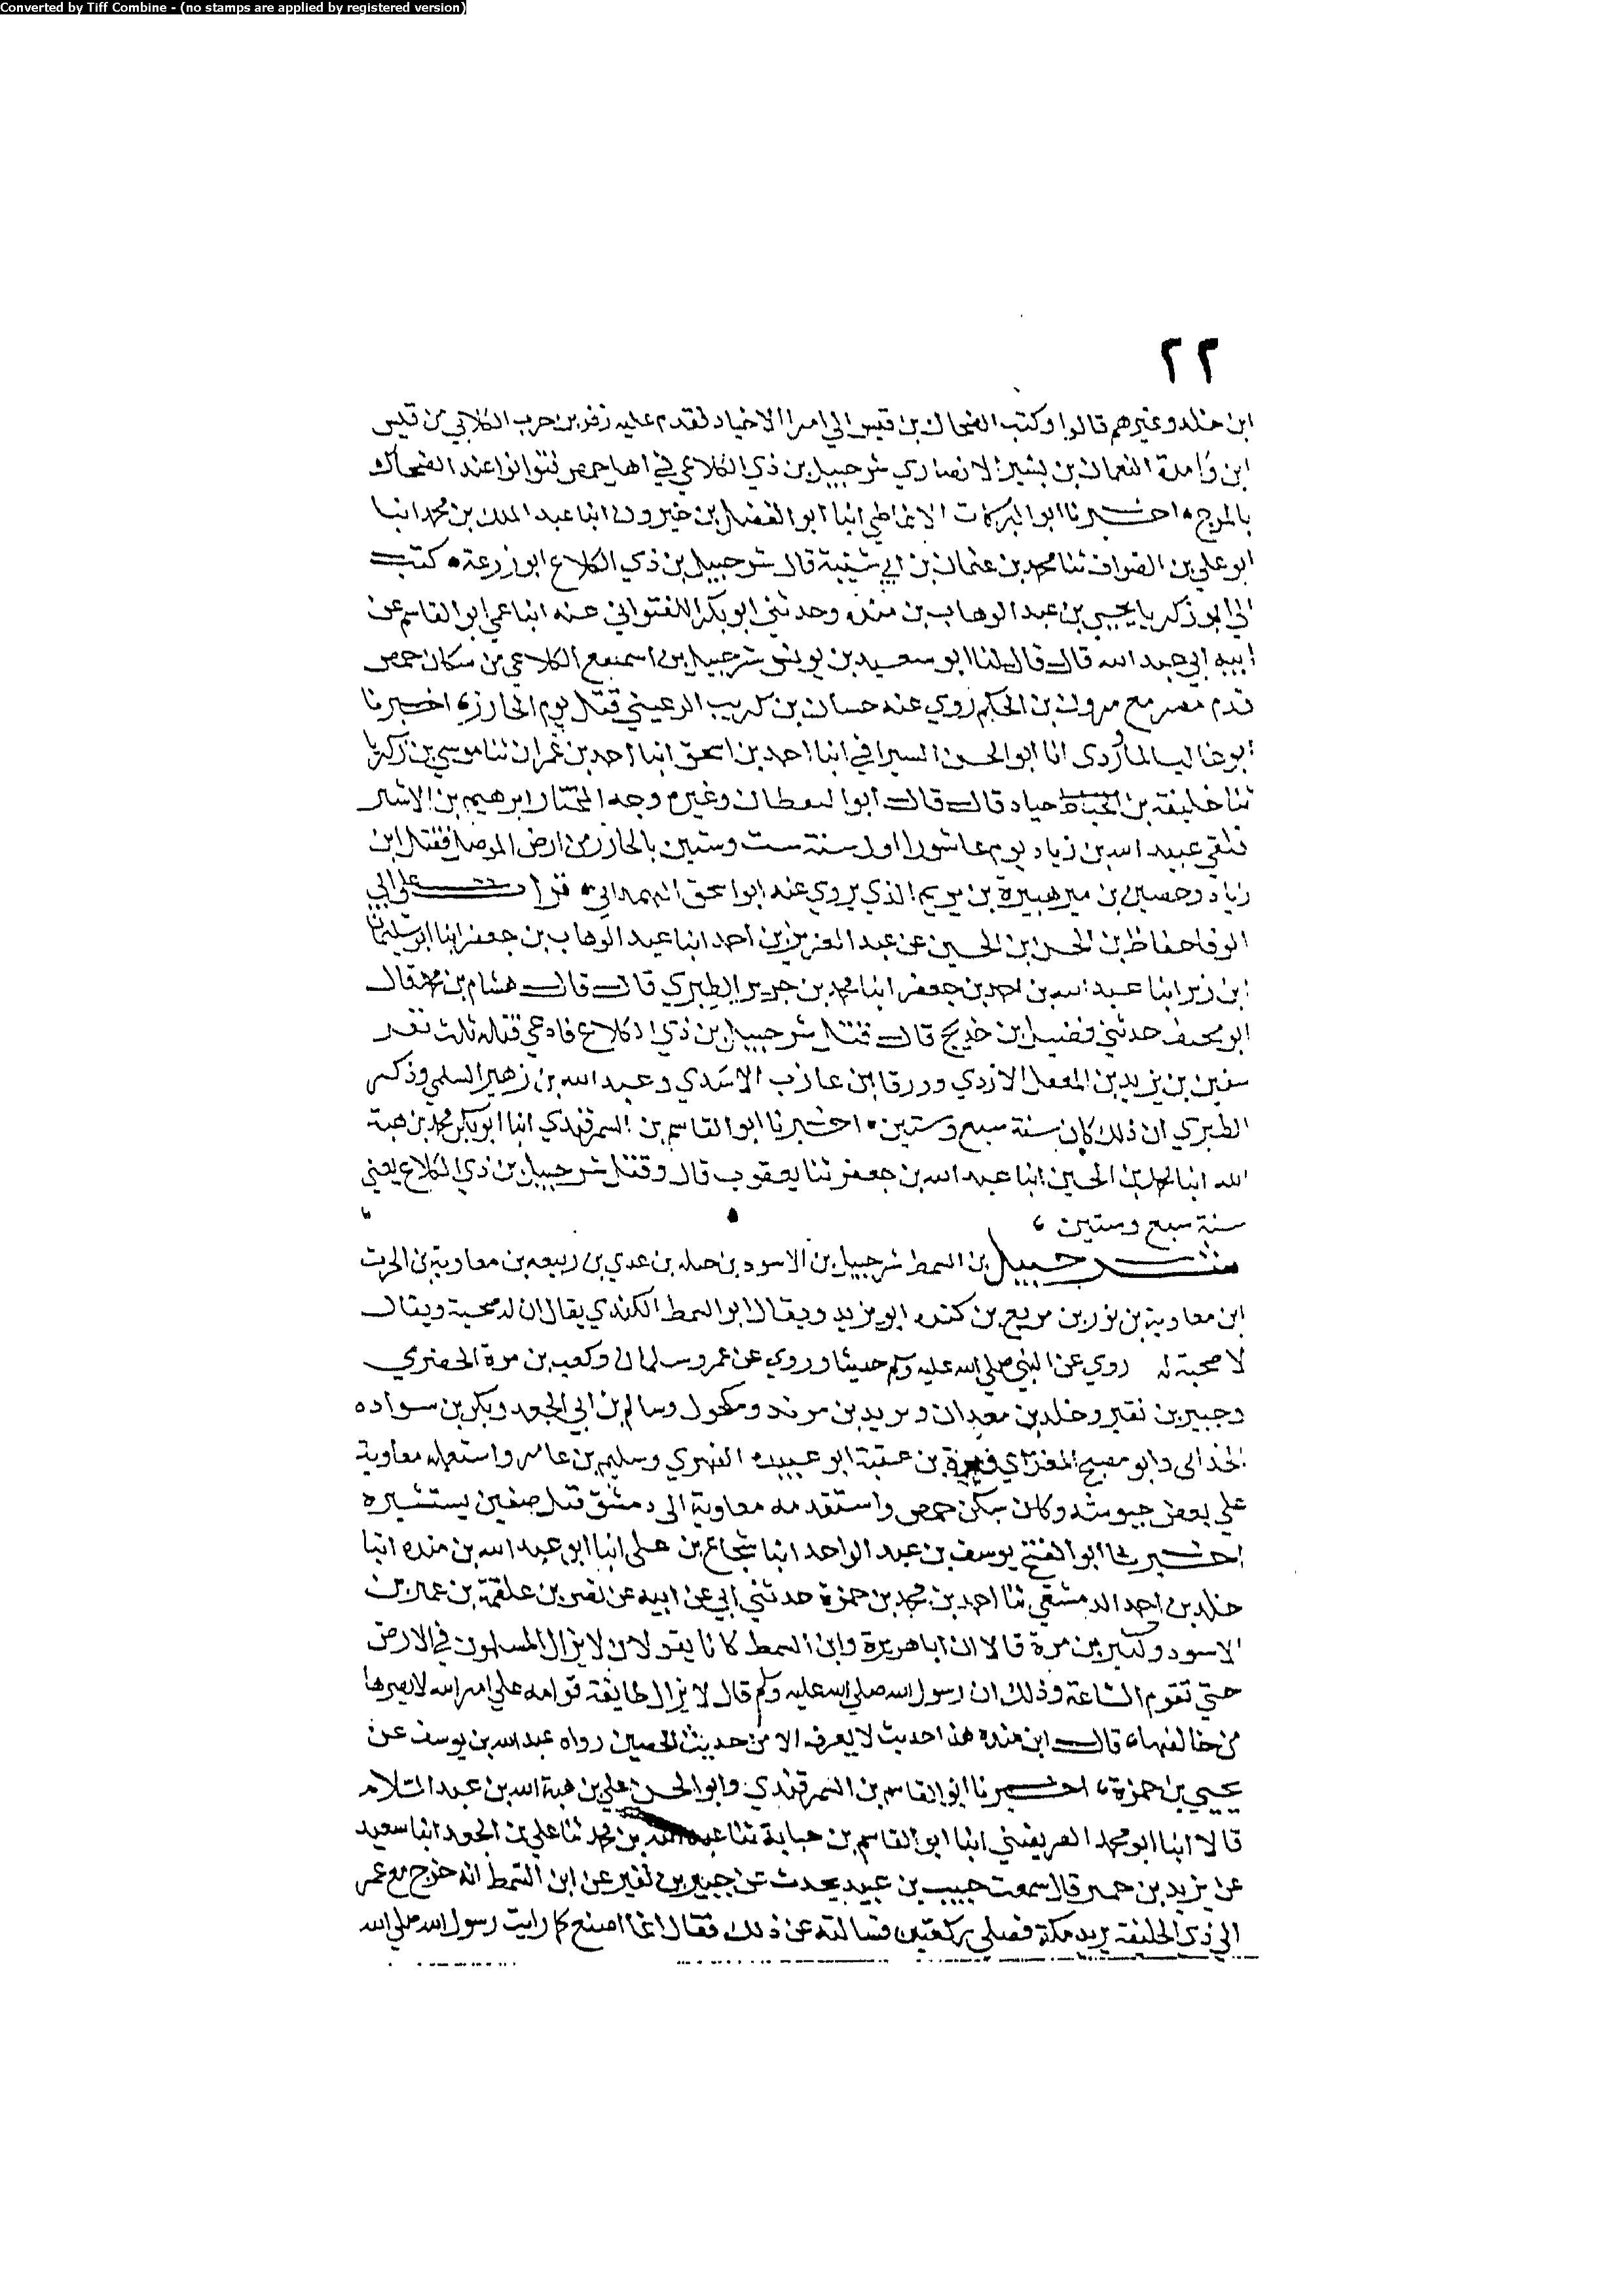 Converted by Tiff Combine - (no stamps are applied by registered version)
٢٢
ابن خلد وغيرهم قالوا وكتب الضحاك بن قيس الي امرا الاجناد فقدم عليه زفر بن حرب الكلابي من قيس
ابن وامدة النعمان بن بشير الانصاري شرحبيل بن ذي الكلاعي في اهل حمص فتوانوا عند الضحاك
بالمرج، اخبرنا ابو البركات الانماطي انبا ابو الفضل بن خيرون انبا عبد الملك بن محمد انبا
ابو علي بن الصواف ثنا محمد بن عثمان بن ابي شيبة قال شرحبيل بن ذي الكلاع ابو زرعة، كتب
الي ابو زكريا يحيي بن عبد الوهاب بن منده وحدثني ابو بكر اللفتواني عنه انبا عمي ابو القاسم عن
ابيه ابي عبد الله قال قال لنا ابو سعيد بن يونس شرحبيل بن اسميفع الكلاعي من سكان حمص
قدم مصر مع مروان بن الحكم روي عنه حسان بن كريب الرعيني قتل يوم الخازر، اخبرنا
ابو غالب الماوردي انا ابو الحسن السيرافي انبا احمد بن اسحق انبا احمد بن عمران ثنا موسي بن زكريا
ثنا خليفة بن الخياط قال قال ابو اليقطان وغيره وجه المختار ابرهيم بن الاشتر
فلقي عبيد الله بن زياد يوم عاشورا اول سنة ست وستين بالخازر من ارض الموصل فقتل ابن
زياد وحصين بن مير هبيرة بن يريم الذي يروي عنه ابو اسحق الهمداني، قرات علي ابي
الوفا حفاظ بن الحسن بن الحسين عن عبد العزيز بن احمد انبا عبد الوهاب بن جعفر انبا ابو سليمان
ابن زبر انبا عبد الله بن احمد بن جعفر انبا محمد بن جرير الطبري قال قال هشام بن محمد قال
ابو مخنف حدثني فضيل بن خديج قال قتل شرحبيل بن ذي الكلاع فادعي قتله ثلث نفر
سفين بن يزيد بن المغفل الازدي وورقا بن عازب الاسدي وعبد الله بن زهير السلمي وذكر
الطبري ان ذلك كان سنة سبع وستين، اخبرنا ابو القاسم بن السمرقندي انبا ابو بكر محمد بن هبة
الله انبا محمد بن الحسين انبا عبد الله بن جعفر ثنا يعقوب قال وقتل شرحبيل بن ذي الكلاع يعني
سنة سبع وستين،
شرحبيل بن السمط شرحبيل بن الاسود بن جبله بن عدي بن ربيعه بن معاوية بن الحرث
ابن معاوية بن ثور بن مريع بن كنده ابو يزيد ويقال ابو السمط الكندي يقال ان له صحبة ويقال
لا صحبة له روي عن النبي صلي الله عليه وسلم حديثا وروي عن عمر وسلمان وكعب بن مرة الحضري
وجبير بن نفير وخلد بن معدان ويزيد بن مرثد ومكحول وسالم بن ابي الجعد وبكر بن سواده
الجذامى وابو مصبح المقرائي بن عقبة ابو عبيده الفهري وسليم بن عامر واستعمله معاوية
علي بعض جيوشه وكان يسكن حمص واستقدمه معاوية الى دمشق قبل صفين يستشيره
اخبرنا ابو الفتح يوسف بن عبد الواحد انبا شجاع بن على انبا ابو عبد الله بن منده انبا
خلد بن احمد الدمشقي ثنا احمد بن محمد بن حمزة حدثني ابي عن ابيه عن نصر بن علقمة بن عمير بن
الاسود وكثير بن مرة قالا ان ابا هريرة وابن السمط كانا يقولان لا يزال المسلمون في الارض
حتي تقوم الساعة وذلك ان رسول الله صلي الله عليه وسلم قال لا يزال طايفة قوامه علي امر الله لا يضرها
من خالفها، قال ابن منده هذا حديث لا يعرف الا من حديث الحصين رواه عبد الله بن يوسف عن
يحيي بن حمزة، اخبرنا ابو القاسم بن السمرقندي وابو الحسن علي بن هبة الله بن عبد السلام
قالا انبا ابو محمد الصريفيني انبا ابو القاسم بن حبابة ثنا عبد الله بن محمد ثنا علي بن الجعد انبا سعيد
عن يزيد بن حمير قال سمعت حبيب بن عبيد يحدث عن جبير بن نفير عن ابن السمط انه خرج مع عمر
الي ذي الحليفة يريد مكة فصلي ركعتين فسالته عن ذلك فقال انما اصنع كما رايت رسول الله صلي الله